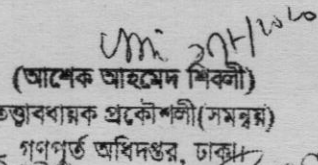 (আশেক আহমেদ শিবলী)
তত্ত্বাবধায়ক প্রকৌশলী(সমন্বয়)
গণপূর্ত অধিদপ্তর, ঢাকা।